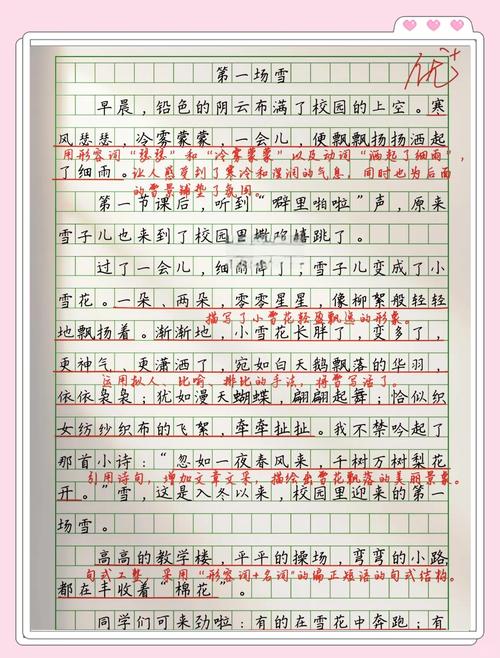 第一场雪
优+
早晨，铅色的阴云布满了校园的上空。寒
风瑟瑟，冷雾蒙蒙，一会儿，便飘飘扬扬洒起
用形容词“瑟瑟”和“冷雾蒙蒙”以及动词“洒起了细雨”，
了细雨。
让人感受到了寒冷和湿润的气息，同时也为后面
的雪景铺垫了氛围。
第一节课后，听到“噼里啪啦”声，原来
雪子儿也来到了校园里撒欢嬉跳了。
过了一会儿，细雨停了，雪子儿变成了小
雪花。一朵、两朵，零零星星，像柳絮般轻轻
描写了小雪花轻盈飘逸的形象。
地飘扬着。渐渐地，小雪花长胖了，变多了，
更神气、更潇洒了，宛如白天鹅飘落的华羽，
运用拟人、比喻、排比的手法，将雪写活了。
依依袅袅；犹如漫天蝴蝶，翩翩起舞；恰似织
女纺纱织布的飞絮，牵牵扯扯。我不禁吟起了
那首小诗：“忽如一夜春风来，千树万树梨花
引用诗句，增加文章文采，描绘出雪花飘落的美丽景象。
开。”雪，这是入冬以来，校园里迎来的第一
场雪。
高高的教学楼，平平的操场，弯弯的小路，
句式工整，采用“形容词+名词”的偏正短语的句式结构。
都在丰收着“棉花”。
同学们可来劲啦：有的在雪花中奔跑；有